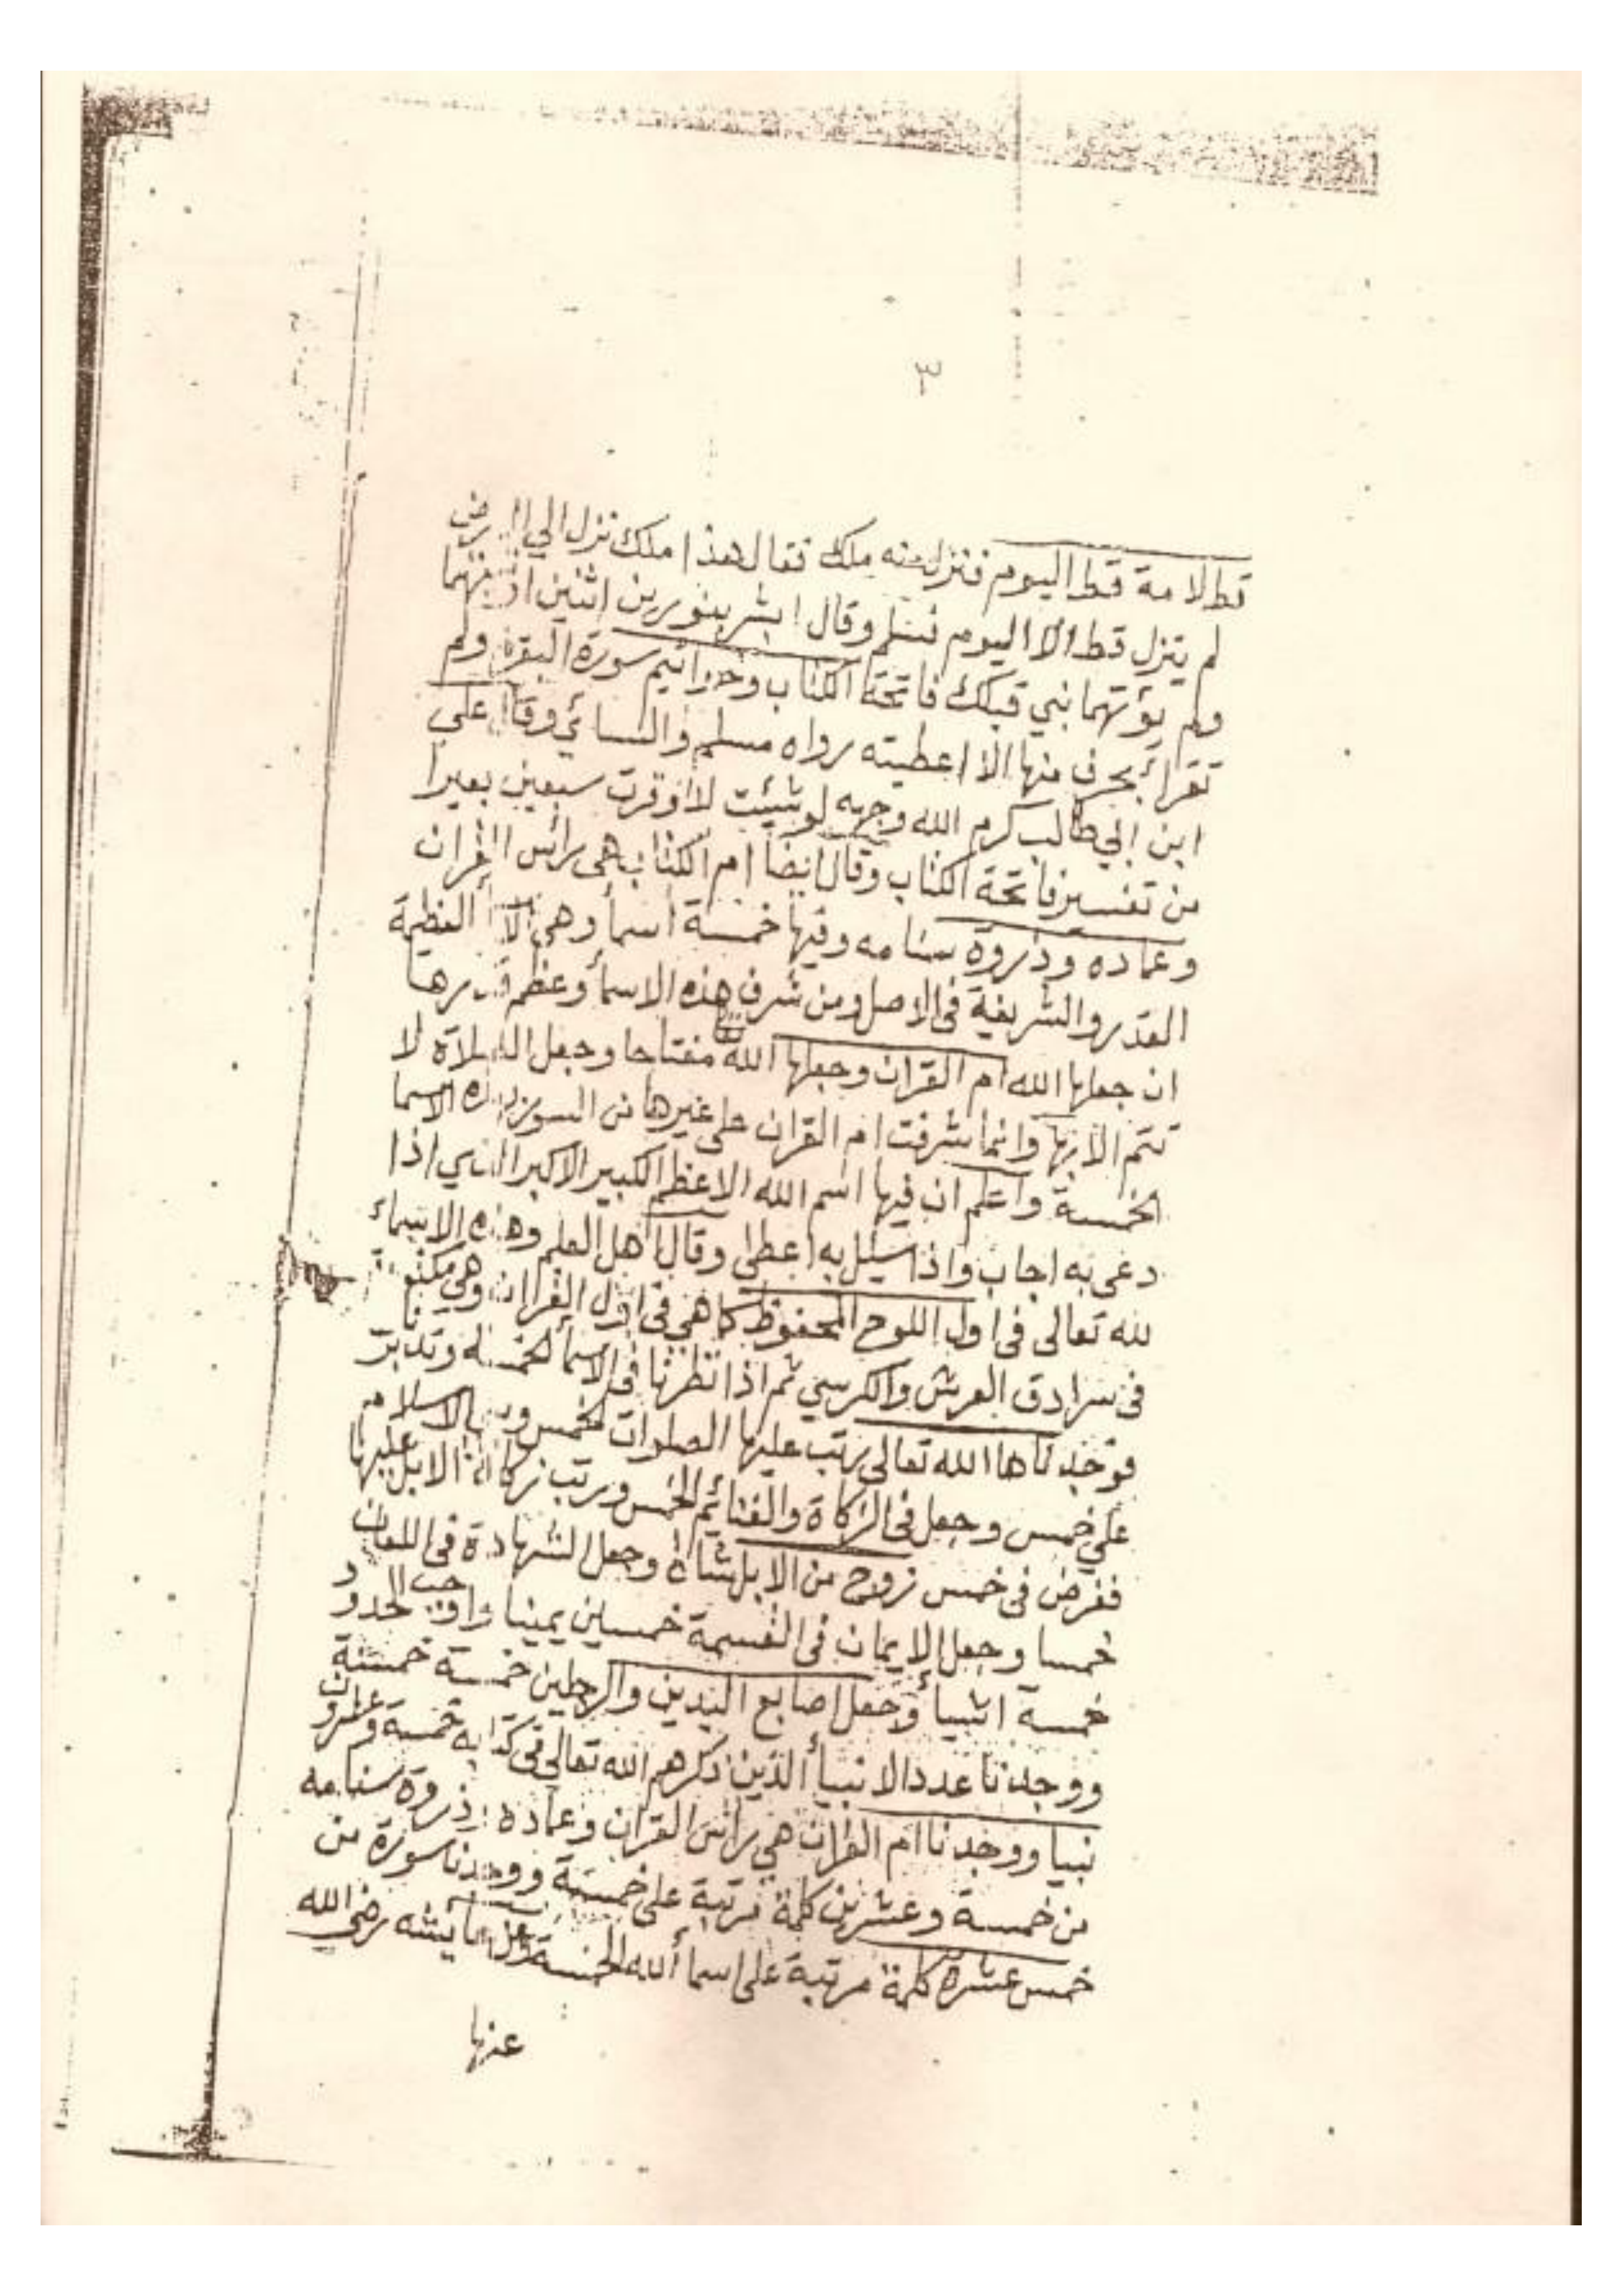 ٣
قط لامة قط اليوم فنزل منه ملك فقال هذا ملك نزل الي الارض
لم ينزل قط الا اليوم فسلم وقال ابشر بنورين اثنين اوتيتهما
ولم يؤتهما نبي قبلك فاتحة الكتاب وخواتيم سورة البقرة ولم
تقرأ بحرف منها الا اعطيته رواه مسلم والنسائي وقال علي
ابن ابي طالب كرم الله وجهه لو شئيت لا اوقرت سبعين بعيرا
من تفسير فاتحة الكتاب وقال ايضا ام الكتاب هي راس القران
وعماده وذروة سنامه وفيها خمسة اسمأ وهي العظيمة
القدر والشريفة في الاصل ومن شرف هذه الاسمأ وعظم قدرها
ان جعلها الله ام القران وجعلها الله مفتاحا وجعل الصلاة لا
تتم الا بها وانما شرفت ام القران على غيرها من السور بهذه الاسما
الخمسة واعلم ان فيها اسم الله الاعظم الكبير الاكبر الذي اذا
دعى به اجاب واذا سئل به اعطى وقال اهل العلم وهذه الاسماء
لله تعالى في اول اللوح المحفوظ كما هي في اول القران وهي مكتوبة
في سرادق العرش والكرسي ثم اذا نظرنا في الاسمأ الخمسة وتدبرنا
فوجدناها الله تعالى رتب عليها الصلوات الخمس وبني الاسلام
على خمس وجعل في الزكاة والغنائم الخمس ورتب زكاة الابل عليها
ففرض في خمس زوج من الابل شاة وجعل الشهادة في اللعان
خمسا وجعل الايمان في القسمة خمسين يمينا واوجب الحدود
خمسة اشيأ وجعل اصابع اليدين والرجلين خمسة خمسة
ووجدنا عدد الانبيأ الذين ذكرهم الله تعالى في كتابه خمسة وعشرون
نبيا ووجدنا ام القران هي راس القران وعماده وذروة سنامه
من خمسة وعشرين كلمة مرتبة على خمسة ووجدنا سورة من
خمس عشرة كلمة مرتبة على اسمأ الله الخمسة وعن عايشه رضي الله
عنها